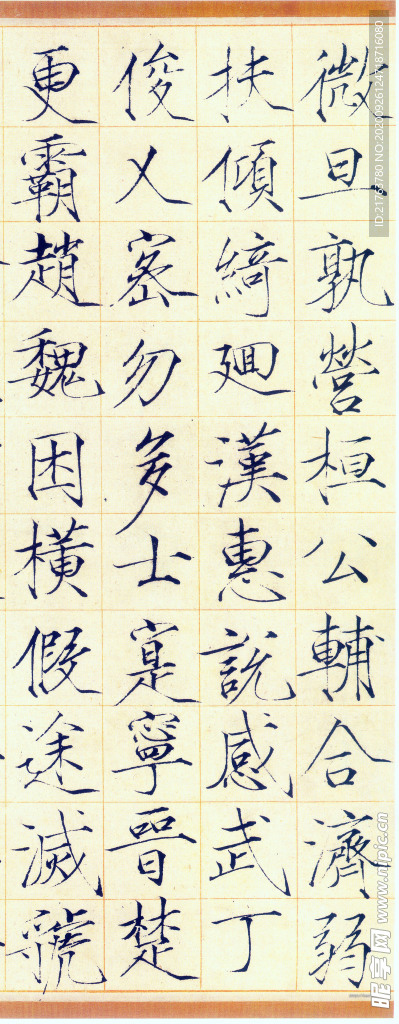 微旦孰營桓公輔合濟弱
扶傾綺迴漢惠說感武丁
俊乂密勿多士寔寧晉楚
更霸趙魏困橫假途滅虢
昵享网 www.nipic.cn